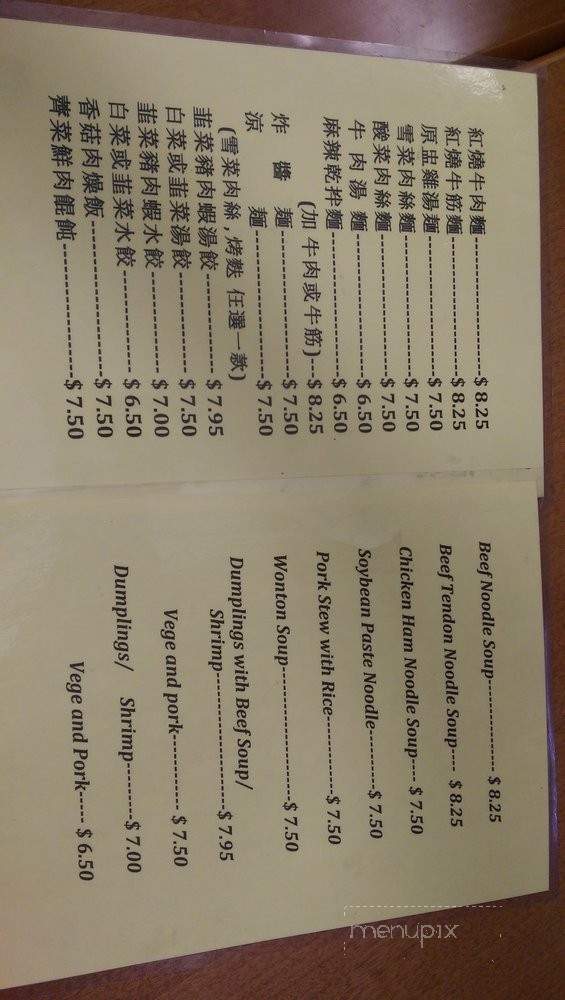 紅燒牛肉麵--------------------$ 8.25
紅燒牛筋麵--------------------$ 8.25
原盅雞湯麵--------------------$ 7.50
雪菜肉絲麵--------------------$ 7.50
酸菜肉絲麵--------------------$ 7.50
牛 肉 湯 麵--------------------$ 6.50
麻辣乾拌麵--------------------$ 6.50
(加 牛肉或牛筋)---$ 8.25
炸 醬 麵--------------------$ 7.50
涼 麵--------------------$ 7.50
(雪菜肉絲 , 烤麩 任選一款)
韮菜豬肉蝦湯餃----------------$ 7.95
白菜或韮菜湯餃----------------$ 7.50
韮菜豬肉蝦水餃----------------$ 7.00
白菜或韮菜水餃----------------$ 6.50
香菇肉燥飯--------------------$ 7.50
薺菜鮮肉餛飩------------------$ 7.50
Beef Noodle Soup----------------- $ 8.25
Beef Tendon Noodle Soup---- $ 8.25
Chicken Ham Noodle Soup---- $ 7.50
Soybean Paste Noodle----------$ 7.50
Pork Stew with Rice-------------$ 7.50
Wonton Soup---------------------$ 7.50
Dumplings with Beef Soup/
Shrimp----------------------$ 7.95
Vege and pork------------ $ 7.50
Dumplings/ Shrimp---------$ 7.00
Vege and Pork----- $ 6.50
menupix